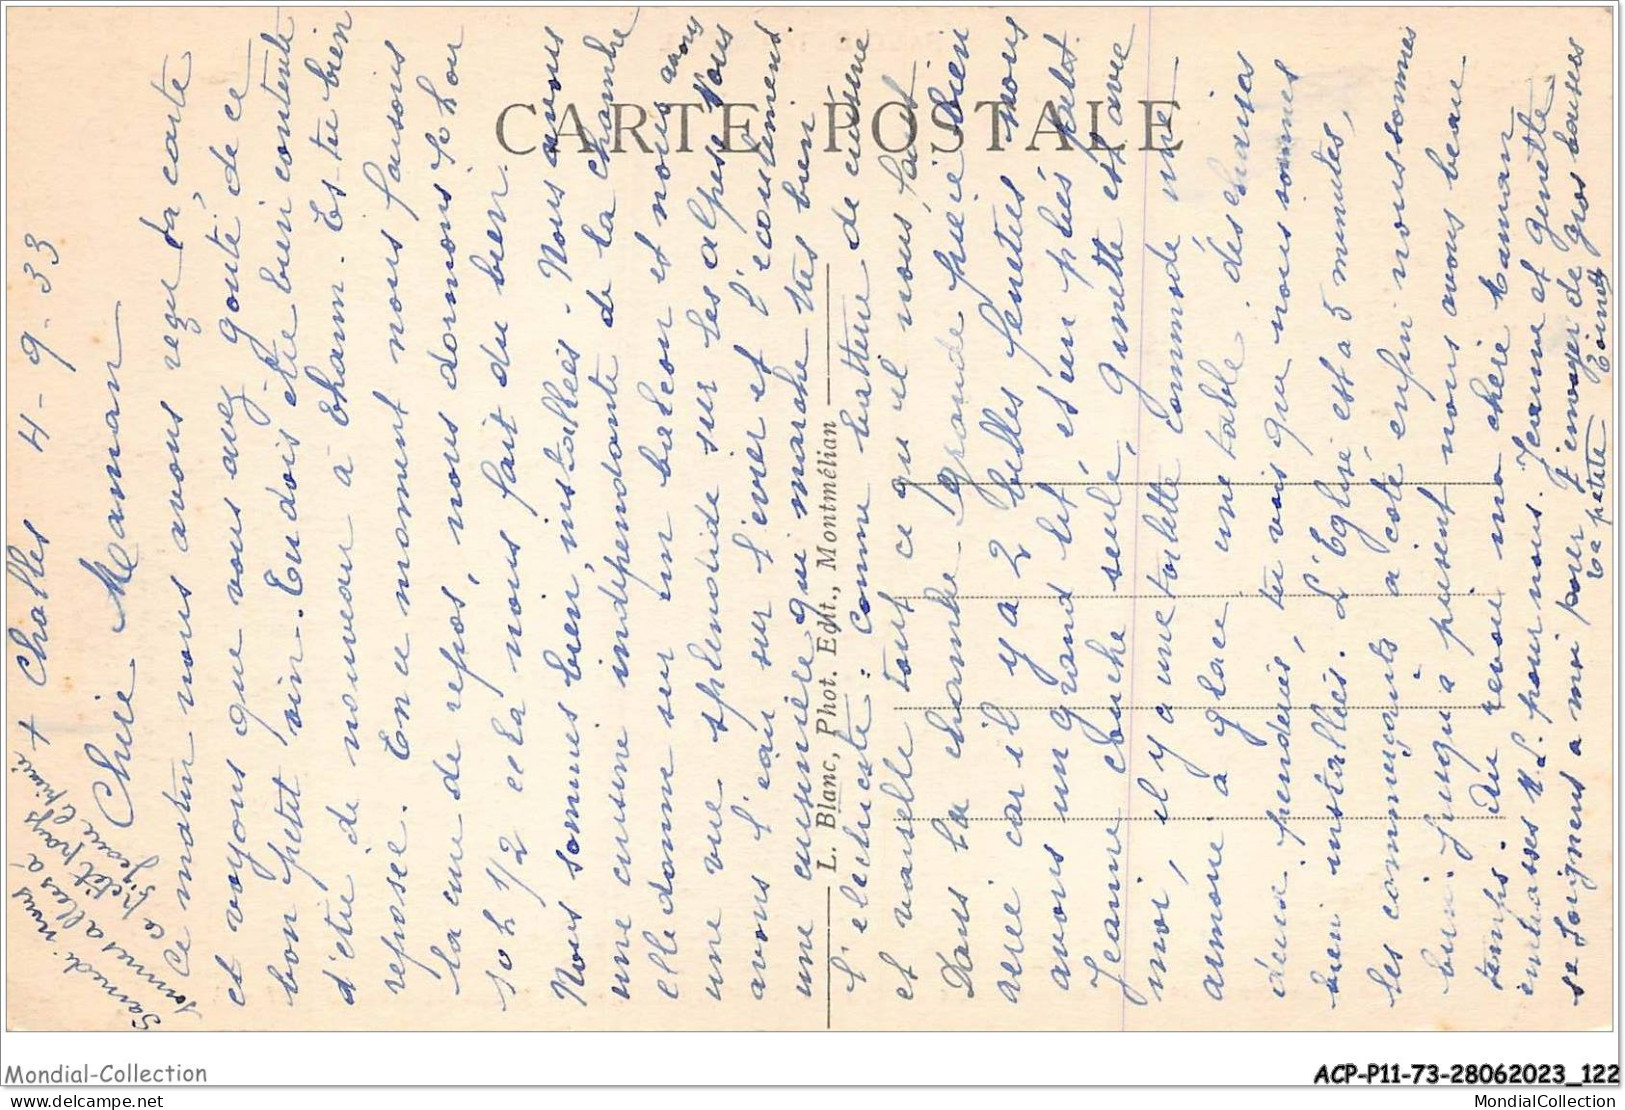 + Challes 4-9-33
Chère Maman
Ce matin nous avons reçu ta carte
et voyons que vous avez gouté de ce
bon petit vin. Tu dois être bien contente
d'être de nouveau à Thaim. Es-tu bien
reposée. En ce moment nous faisons
la cure de repos, nous dormons 9 h ou
10 h 1/2 cela nous fait du bien.
Nous sommes bien installées. Nous avons
une cuisine indépendante de la chambre
elle donne sur un balcon et nous avons
une vue splendide sur les alpes. Nous
avons l'eau sur l'evier et l'écoulement.
une cuisinière qui marche très bien
l'electricité: comme batterie de cuisine
et vaisselle tout ce qu'il nous faut
Dans la chambre grande pièce bien
aeré car il y a 2 belles fenêtres nous
avons un grand lit, et un pliés
Jeanne couche seule, Ginette est avec
moi, il y a une toilette commode une
armoire à glace, une table. des chaises
deux penderies, tu vois que nous sommes
bien installées. L'Eglise est a 5 minutes,
les commerçants a coté enfin nous sommes
bien. Jusqu'a présent nous avons beau
temps. Au revoir ma chère Maman
embrasses M.L. pour nous. Jeanne et Ginette
se joignent a moi pour t'envoyer de gros baisers
Ta petite
Samedi nous
sommes allées à
ce petit pays
CARTE POSTALE
L. Blanc, Phot. Edit., Montmélian
Mondial-Collection
ACP-P11-73-28062023_122
delcampe.net
MondialCollection